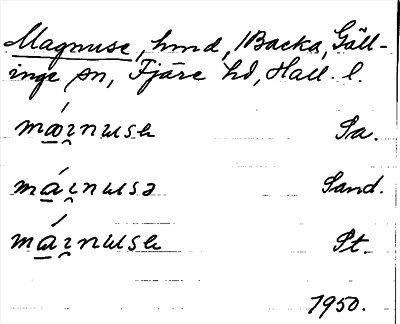 Magnuse, hmd, /Backa, Gäll-
inge sn, Fjäre hd, Hall. l.
má̱ı̯nusɐ Sa.
má̱ı̯nusə Sand.
má̱ı̯nusɐ Pt.
1950.